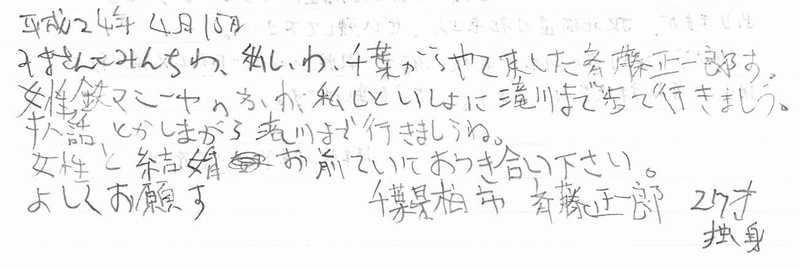 平成24年4月15日
みまさんこんみんちわ、私しわ、千葉からやて来ました斉藤正一郎す。
女性鉄マニーヤのかわ、私しといしょに滝川まで歩て行きましう。
才人話とかしまがら滝川まで行きましうね。
女性と結婚お前ていておつき合い下さい。
よしくお願す 千葉県柏市 斉藤正一郎 27才
独身